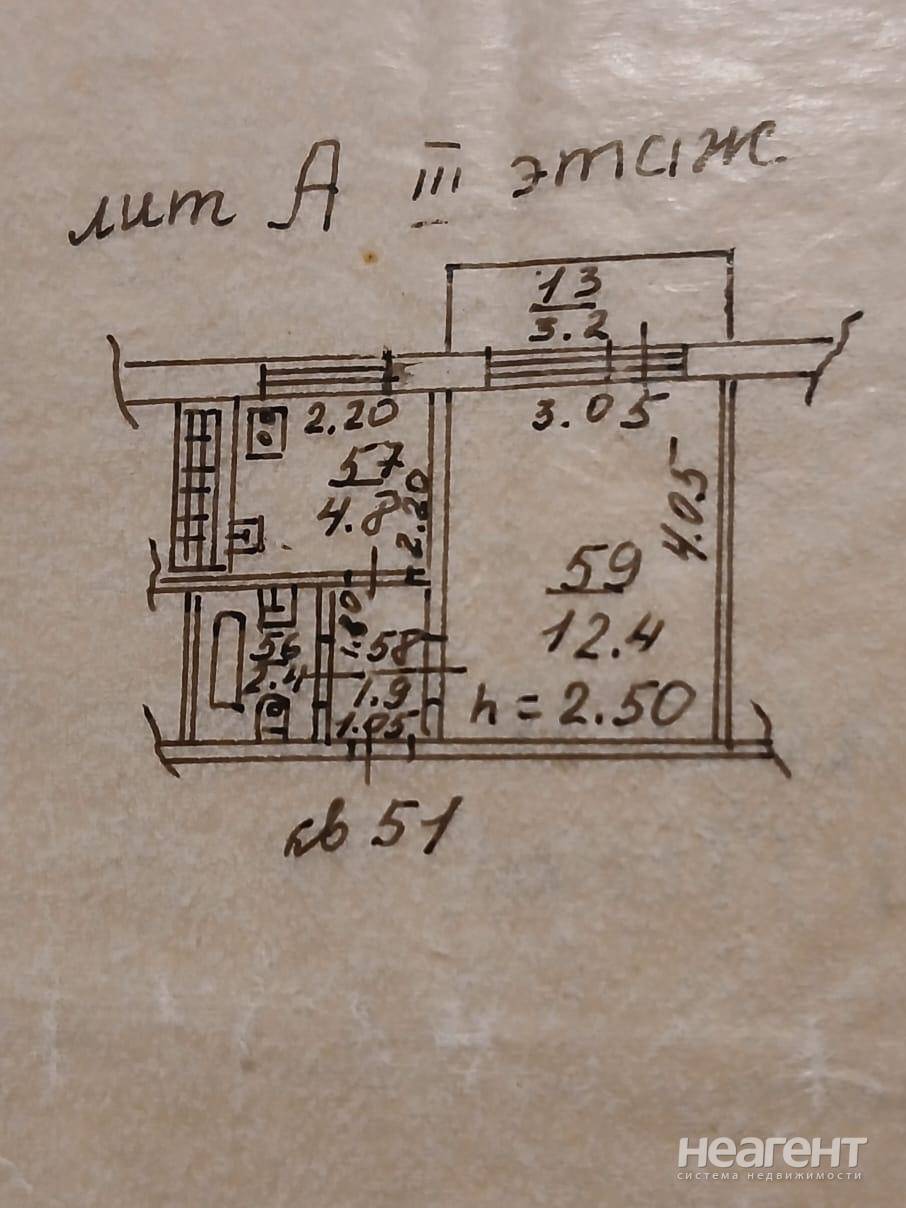 лит А III этаж
13
3.2
2.20
3.05
57
4.8
2.20
4.05
59
12.4
h = 2.50
56
2.4
1.80
58
1.9
1.05
кв 51
неагент
система недвижимости